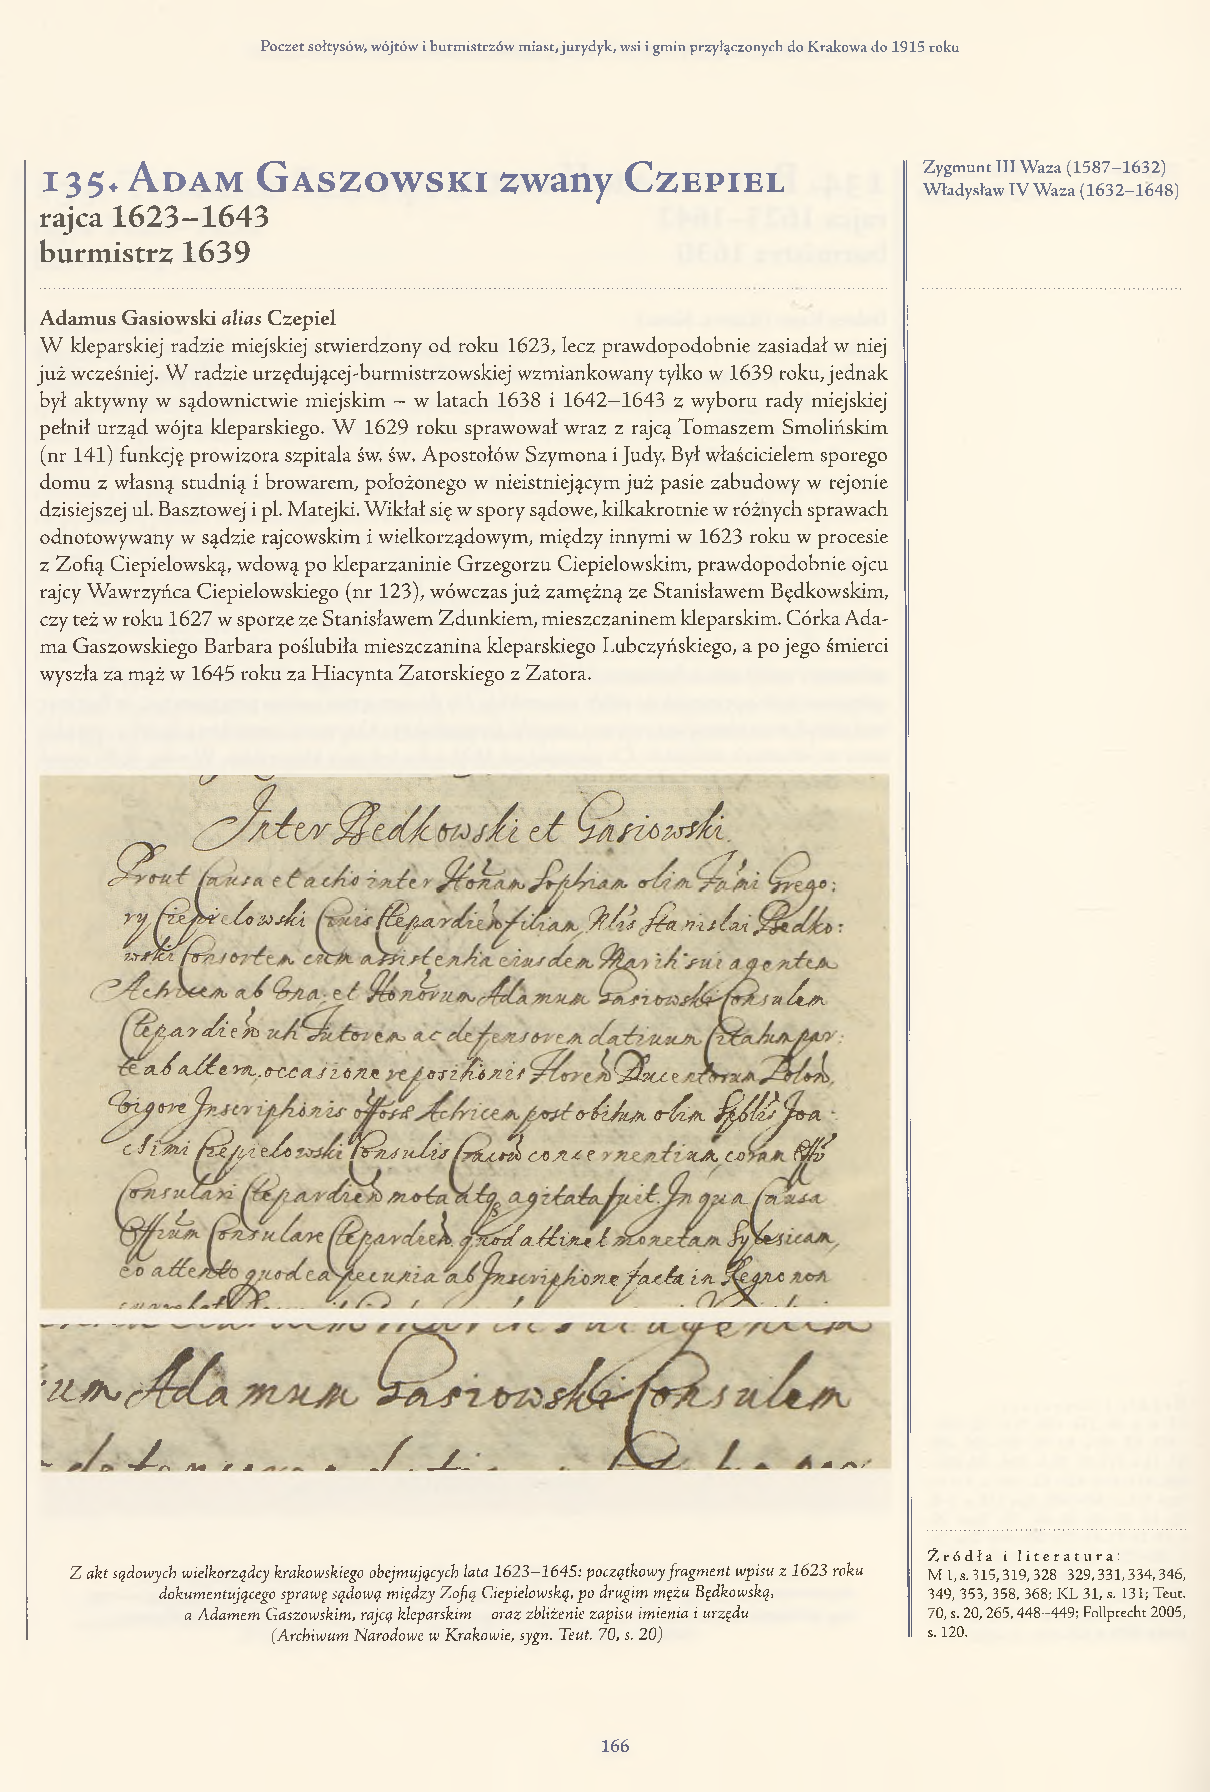 Poczet sołtysów, wójtów i burmistrzów miast, jurydyk, wsi i gmin przyłączonych do Krakowa do 1915 roku
135. Adam Gaszowski zwany Czepiel
rajca 1623–1643
burmistrz 1639
Zygmunt III Waza (1587–1632)
Władysław IV Waza (1632–1648)
Adamus Gasiowski alias Czepiel
W kleparskiej radzie miejskiej stwierdzony od roku 1623, lecz prawdopodobnie zasiadał w niej
już wcześniej. W radzie urzędującej-burmistrzowskiej wzmiankowany tylko w 1639 roku, jednak
był aktywny w sądownictwie miejskim – w latach 1638 i 1642–1643 z wyboru rady miejskiej
pełnił urząd wójta kleparskiego. W 1629 roku sprawował wraz z rajcą Tomaszem Smolińskim
(nr 141) funkcję prowizora szpitala św. św. Apostołów Szymona i Judy. Był właścicielem sporego
domu z własną studnią i browarem, położonego w nieistniejącym już pasie zabudowy w rejonie
dzisiejszej ul. Basztowej i pl. Matejki. Wikłał się w spory sądowe, kilkakrotnie w różnych sprawach
odnotowywany w sądzie rajcowskim i wielkorządowym, między innymi w 1623 roku w procesie
z Zofią Ciepielowską, wdową po kleparzaninie Grzegorzu Ciepielowskim, prawdopodobnie ojcu
rajcy Wawrzyńca Ciepielowskiego (nr 123), wówczas już zamężną ze Stanisławem Będkowskim,
czy też w roku 1627 w sporze ze Stanisławem Zdunkiem, mieszczaninem kleparskim. Córka Ada-
ma Gaszowskiego Barbara poślubiła mieszczanina kleparskiego Lubczyńskiego, a po jego śmierci
wyszła za mąż w 1645 roku za Hiacynta Zatorskiego z Zatora.
Inter Bedkowski et Gasiowski
Prout Causa et actio inter Honam Sophiam olim Fami Grego:
ry Ciepielowski Clepardien filiam Stanislai Bedko:
wski Consortem cum assistentia eiusdem Mariti sui agentem
Actricem ab Una et Honorum Adamum Gasiowski Consulem
Clepardien uti Tutorem ac defensorem datiuum Citatum par:
te ab altera, occasione repositionis Floren Ducentorum Polon,
Vigore Inscriptionis Actricem post obitum olim Joa:
chimi Ciepielowski Consulis Cracow concernentium, coram
Consulari Clepardien mota atq agitata fuit. In qua Causa
Officium Consulare Clepardien quod attinet monetam Sylesicam,
eo attento quod ea pecunia ab Inscriptione facta in Regno non
um Adamum Gasiowski Consulem
Z akt sądowych wielkorządcy krakowskiego obejmujących lata 1623–1645: początkowy fragment wpisu z 1623 roku
dokumentującego sprawę sądową między Zofią Ciepielowską, po drugim mężu Będkowską,
a Adamem Gaszowskim, rajcą kleparskim oraz zbliżenie zapisu imienia i urzędu
(Archiwum Narodowe w Krakowie, sygn. Teut. 70, s. 20)
Źródła i literatura:
M 1, s. 315, 319, 328 329, 331, 334, 346,
349, 353, 358, 368; KL 31, s. 131; Teut.
70, s. 20, 265, 448–449; Follprecht 2005,
s. 120.
166